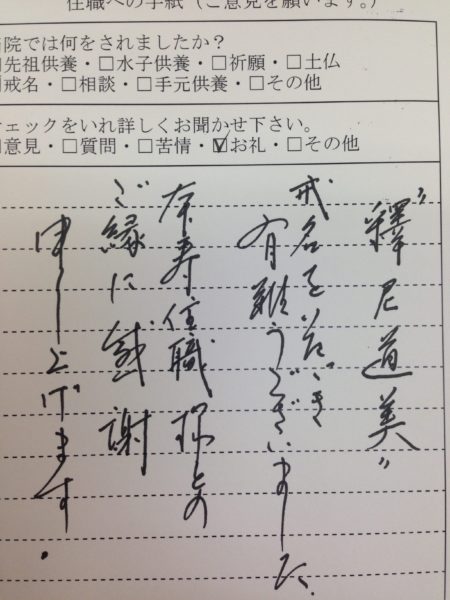 住職への手紙（ご意見を願います。）
当院では何をされましたか？
□先祖供養・□水子供養・□祈願・□土仏
□戒名・□相談・□手元供養・□その他
チェックをいれ詳しくお聞かせ下さい。
□意見・□質問・□苦情・☑お礼・□その他
"釋尼道美"
戒名をいただき
有難うございました.
泰寿住職様との
ご縁に感謝
申し上げます.